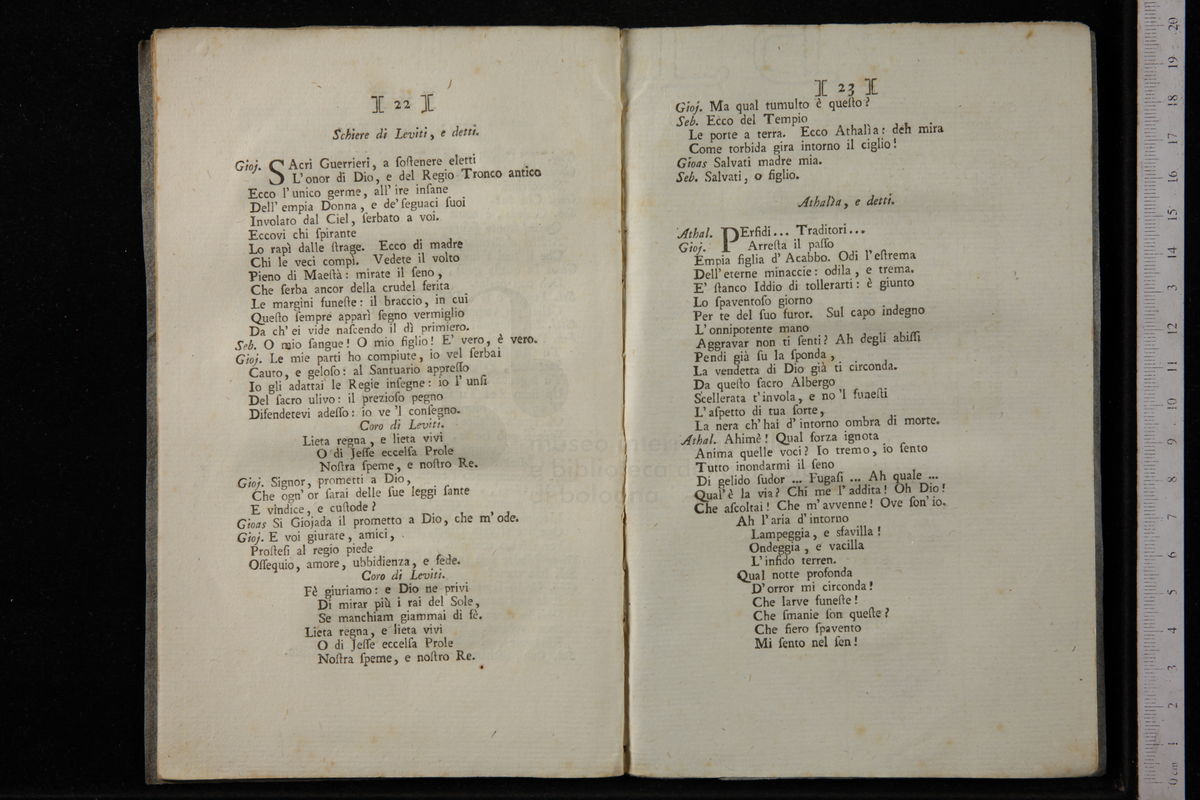 22
Schiere di Leviti, e detti.
Gioj. SAcri Guerrieri, a ſoſtenere eletti
L'onor di Dio, e del Regio Tronco antico
Ecco l'unico germe, all' ire inſane
Dell' empia Donna, e de' ſeguaci ſuoi
Involato dal Ciel, ſerbato a voi.
Eccovi chi ſpirante
Lo rapì dalle ſtrage. Ecco di madre
Chi le veci compì. Vedete il volto
Pieno di Maeſtà: mirate il ſeno,
Che ſerba ancor della crudel ferita
Le margini funeſte: il braccio, in cui
Queſto ſempre apparì ſegno vermiglio
Da ch' ei vide naſcendo il dì primiero.
Seb. O mio ſangue! O mio figlio! E' vero, è vero.
Gioj. Le mie parti ho compiute, io vel ſerbai
Cauto, e geloſo: al Santuario appreſſo
Io gli adattai le Regie inſegne: io l' unſi
Del ſacro ulivo: il prezioſo pegno
Difendetevi adeſſo: io ve 'l conſegno.
Coro di Leviti.
Lieta regna, e lieta vivi
O di Jeſſe eccelſa Prole
Noſtra ſpeme, e noſtro Re.
Gioj. Signor, prometti a Dio,
Che ogn' or ſarai delle ſue leggi ſante
E vindice, e cuſtode?
Gioas Si Giojada il prometto a Dio, che m' ode.
Gioj. E voi giurate, amici,
Proſteſi al regio piede
Oſſequio, amore, ubbidienza, e fede.
Coro di Leviti.
Fè giuriamo: e Dio ne privi
Di mirar più i rai del Sole,
Se manchiam giammai di fè.
Lieta regna, e lieta vivi
O di Jeſſe eccelſa Prole
Noſtra ſpeme, e noſtro Re.
23
Gioj. Ma qual tumulto è queſto?
Seb. Ecco del Tempio
Le porte a terra. Ecco Athalìa: deh mira
Come torbida gira intorno il ciglio!
Gioas Salvati madre mia.
Seb. Salvati, o figlio.
Athalìa, e detti.
Athal. PErfidi... Traditori...
Gioj. Arreſta il paſſo
Empia figlia d' Acabbo. Odi l'eſtrema
Dell'eterne minaccie: odila, e trema.
E' ſtanco Iddio di tollerarti: è giunto
Lo ſpaventoſo giorno
Per te del ſuo furor. Sul capo indegno
L'onnipotente mano
Aggravar non ti ſenti? Ah degli abiſſi
Pendi già ſu la ſponda,
La vendetta di Dio già ti circonda.
Da queſto ſacro Albergo
Scellerata t'invola, e no 'l funeſti
L'aſpetto di tua ſorte,
La nera ch'hai d'intorno ombra di morte.
Athal. Ahimè! Qual forza ignota
Anima quelle voci? Io tremo, io ſento
Tutto inondarmi il ſeno
Di gelido ſudor ... Fugaſi ... Ah quale ...
Qual' è la via? Chi me l'addita! Oh Dio!
Che aſcoltai! Che m'avvenne! Ove ſon' io.
Ah l'aria d'intorno
Lampeggia, e sfavilla!
Ondeggia, e vacilla
L'infido terren.
Qual notte profonda
D'orror mi circonda!
Che larve funeſte!
Che ſmanie ſon queſte?
Che fiero ſpavento
Mi ſento nel ſen!